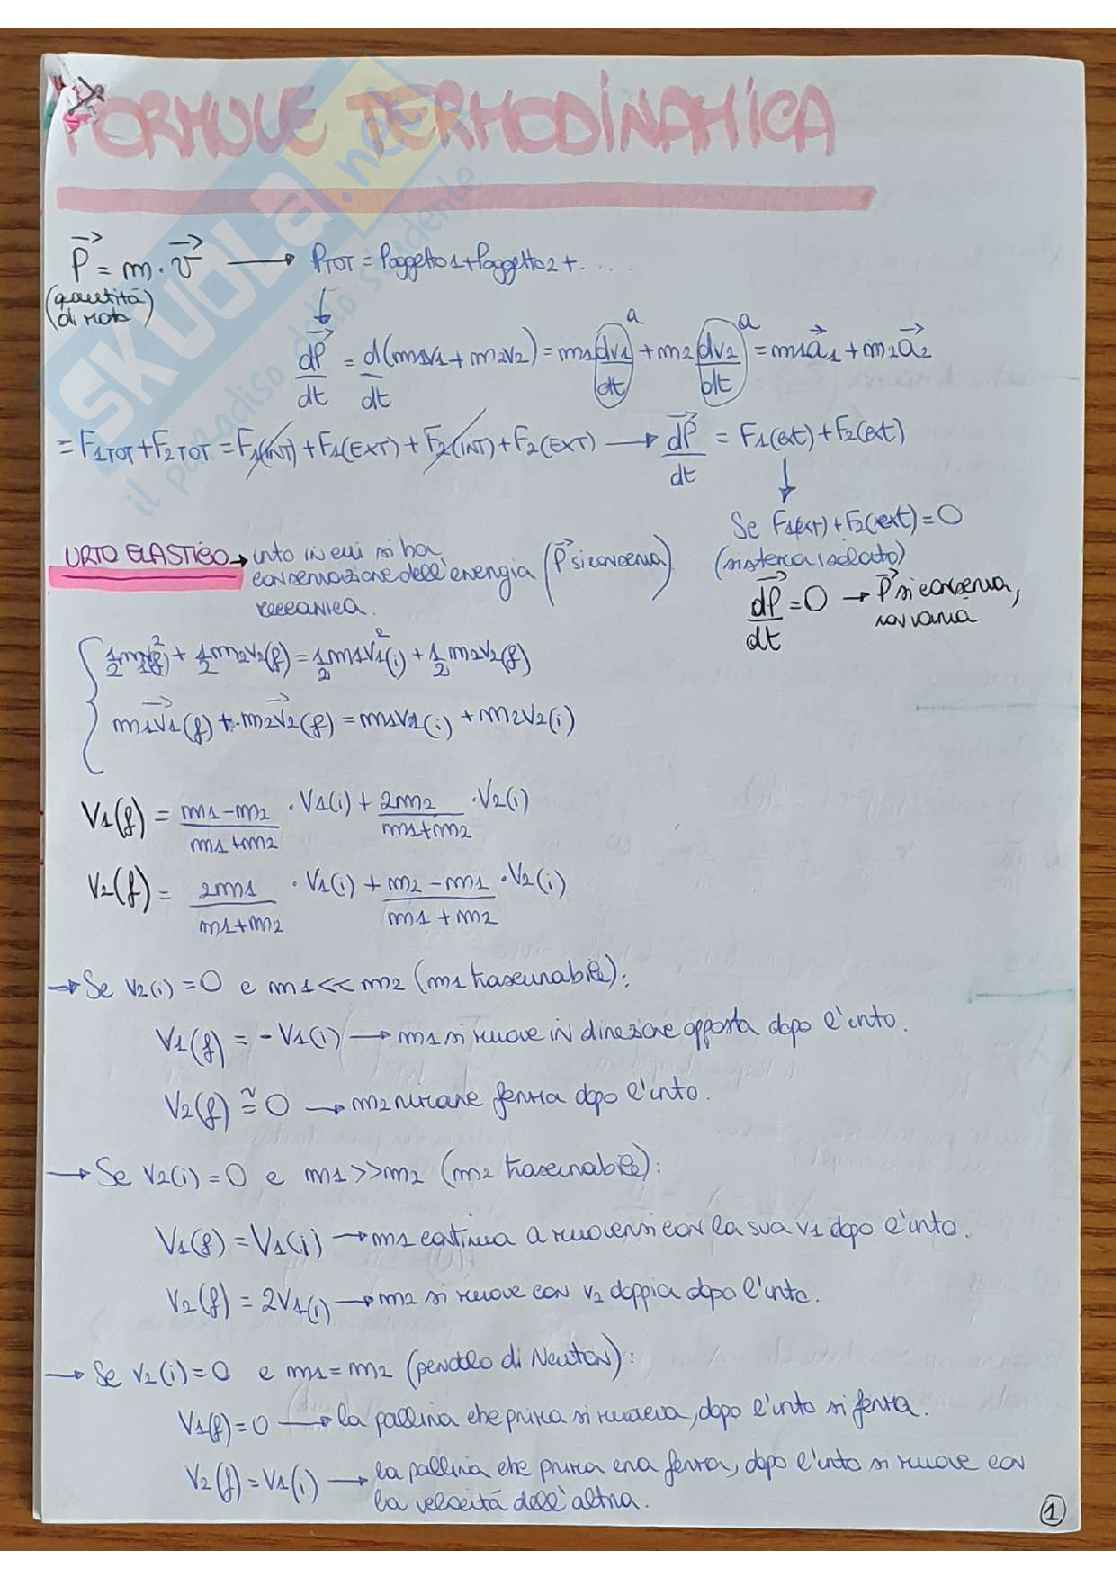 FORMULE TERMODINAMICA
SKUOLA.net
il paradiso dello studente
P = m·v → PTOT = Poggetto1 + Poggetto2 + ....
(quantità di moto)
dP/dt = d/dt (m1v1 + m2v2) = m1 dv1/dt + m2 dv2/dt = m1a1 + m2a2
a a
= F1TOT + F2TOT = F1(INT) + F1(EXT) + F2(INT) + F2(EXT) → dP/dt = F1(ext) + F2(ext)
Se F1(ext) + F2(ext) = 0
(sistema isolato)
dP/dt = 0 → P si conserva, non varia
URTO ELASTICO → urto in cui si ha
conservazione dell'energia (P si conserva)
meccanica.
1/2 m1v1²(f) + 1/2 m2v2(f) = 1/2 m1v1²(i) + 1/2 m2v2(f)
m1v1(f) + m2v2(f) = m1v1(i) + m2v2(i)
V1(f) = m1-m2/m1+m2 · V1(i) + 2m2/m1+m2 · V2(i)
V2(f) = 2m1/m1+m2 · V1(i) + m2-m1/m1+m2 · V2(i)
→ Se v2(i) = 0 e m1 << m2 (m1 trascurabile):
V1(f) = -V1(i) → m1 si muove in direzione opposta dopo l'urto.
V2(f) ≅ 0 → m2 rimane ferma dopo l'urto.
→ Se v2(i) = 0 e m1 >> m2 (m2 trascurabile):
V1(f) = V1(i) → m1 continua a muoversi con la sua v1 dopo l'urto.
V2(f) = 2V1(i) → m2 si muove con v2 doppia dopo l'urto.
→ Se v2(i) = 0 e m1 = m2 (pendolo di Newton):
V1(f) = 0 → la pallina che prima si muoveva, dopo l'urto si ferma.
V2(f) = V1(i) → la pallina che prima era ferma, dopo l'urto si muove con
la velocità dell'altra.
1